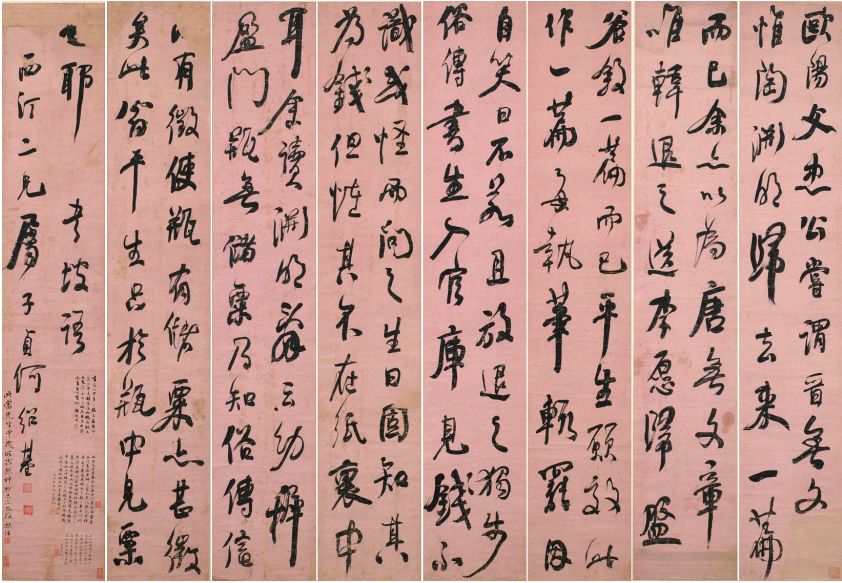 歐陽文忠公嘗謂晉無文
惟陶淵明歸去來一篇
而已余亦以為唐無文章
唯韓退之送李愿歸盤
谷敘一篇而已平生願效此
作一篇每執筆輒罷因
自笑曰不若且放退之獨步
俗傳書生入官庫見錢不
識或怪而問之生曰固知其
為錢但怪其不在紙裹中
耳余讀淵明辭云幼稚
盈門瓶無儲粟乃知俗傳信
而有徵使瓶有儲粟亦甚微
矣此翁平生只於瓶中見粟
也耶 老坡語
西汀二兄屬子貞何紹基